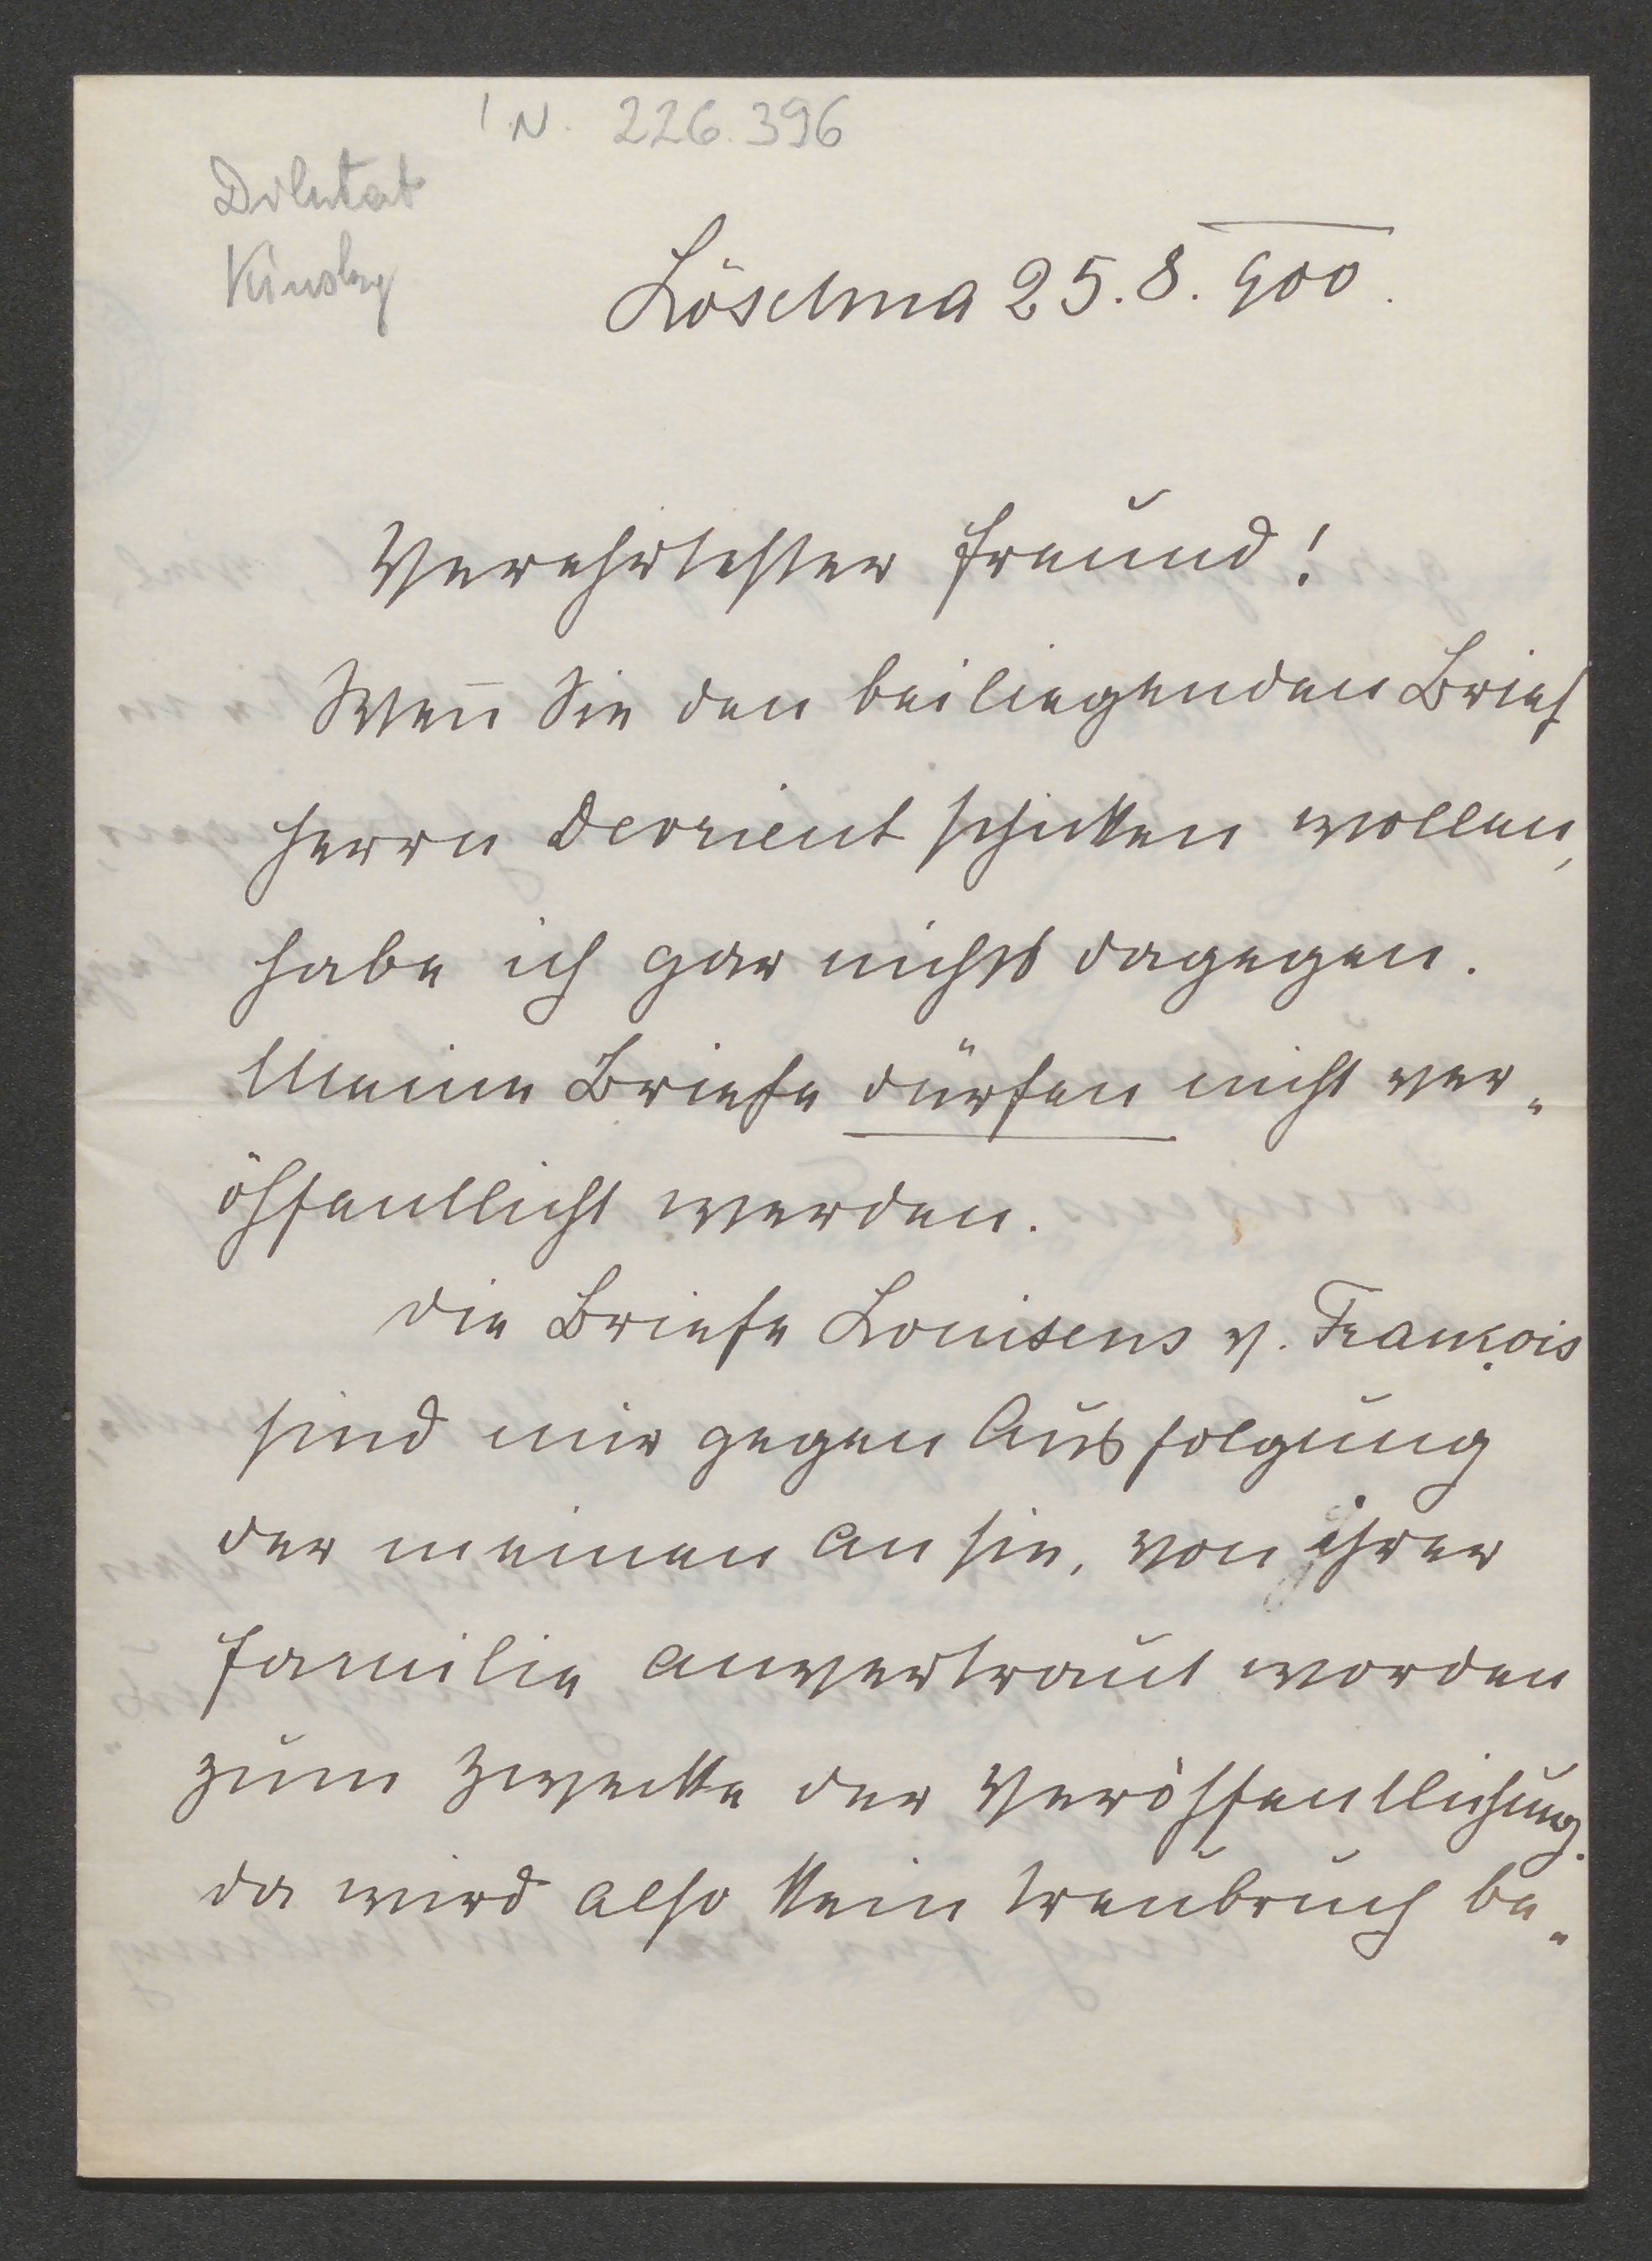 I.N. 226.396
Diktat
Kinsky
Löschna 25. 8. 900.
Verehrtester Freund!
Wen̄ Sie den beiliegenden Brief
Herrn Devrient schikken wollen,
habe ich gar nichts dagegen.
Meine Briefe dürfen nicht ver„
öffentlicht werden.
Die Briefe Louisens v. François
sind mir gegen Ausfolgung
der meinen an sie, von ihrer
Familie anvertraut worden
zum Zwekke der Veröffentlichung.
Da wird also kein Treubruch be„